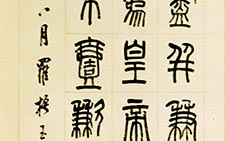 盡并兼
爲皇帝
不壹歉
八月羅振玉